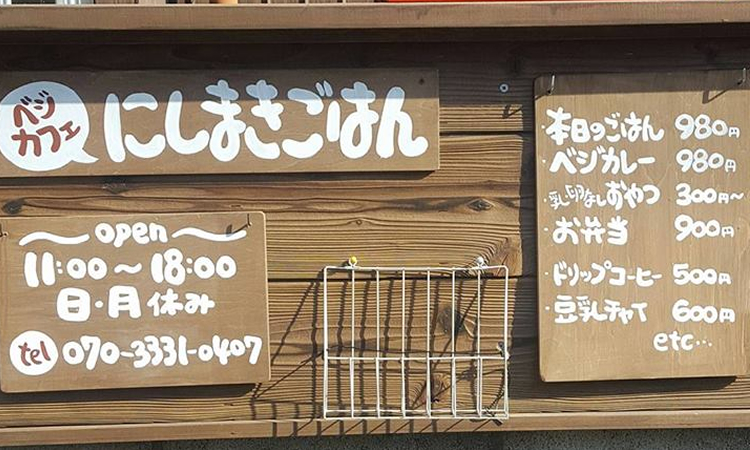 ベジ
カフェ
にしまきごはん
open
11:00～18:00
日・月休み
tel 070-3331-0407
・本日のごはん 980円
・ベジカレー 980円
・乳・卵なしおやつ 300円～
・お弁当 900円
・ドリップコーヒー 500円
・豆乳チャイ 600円
etc…